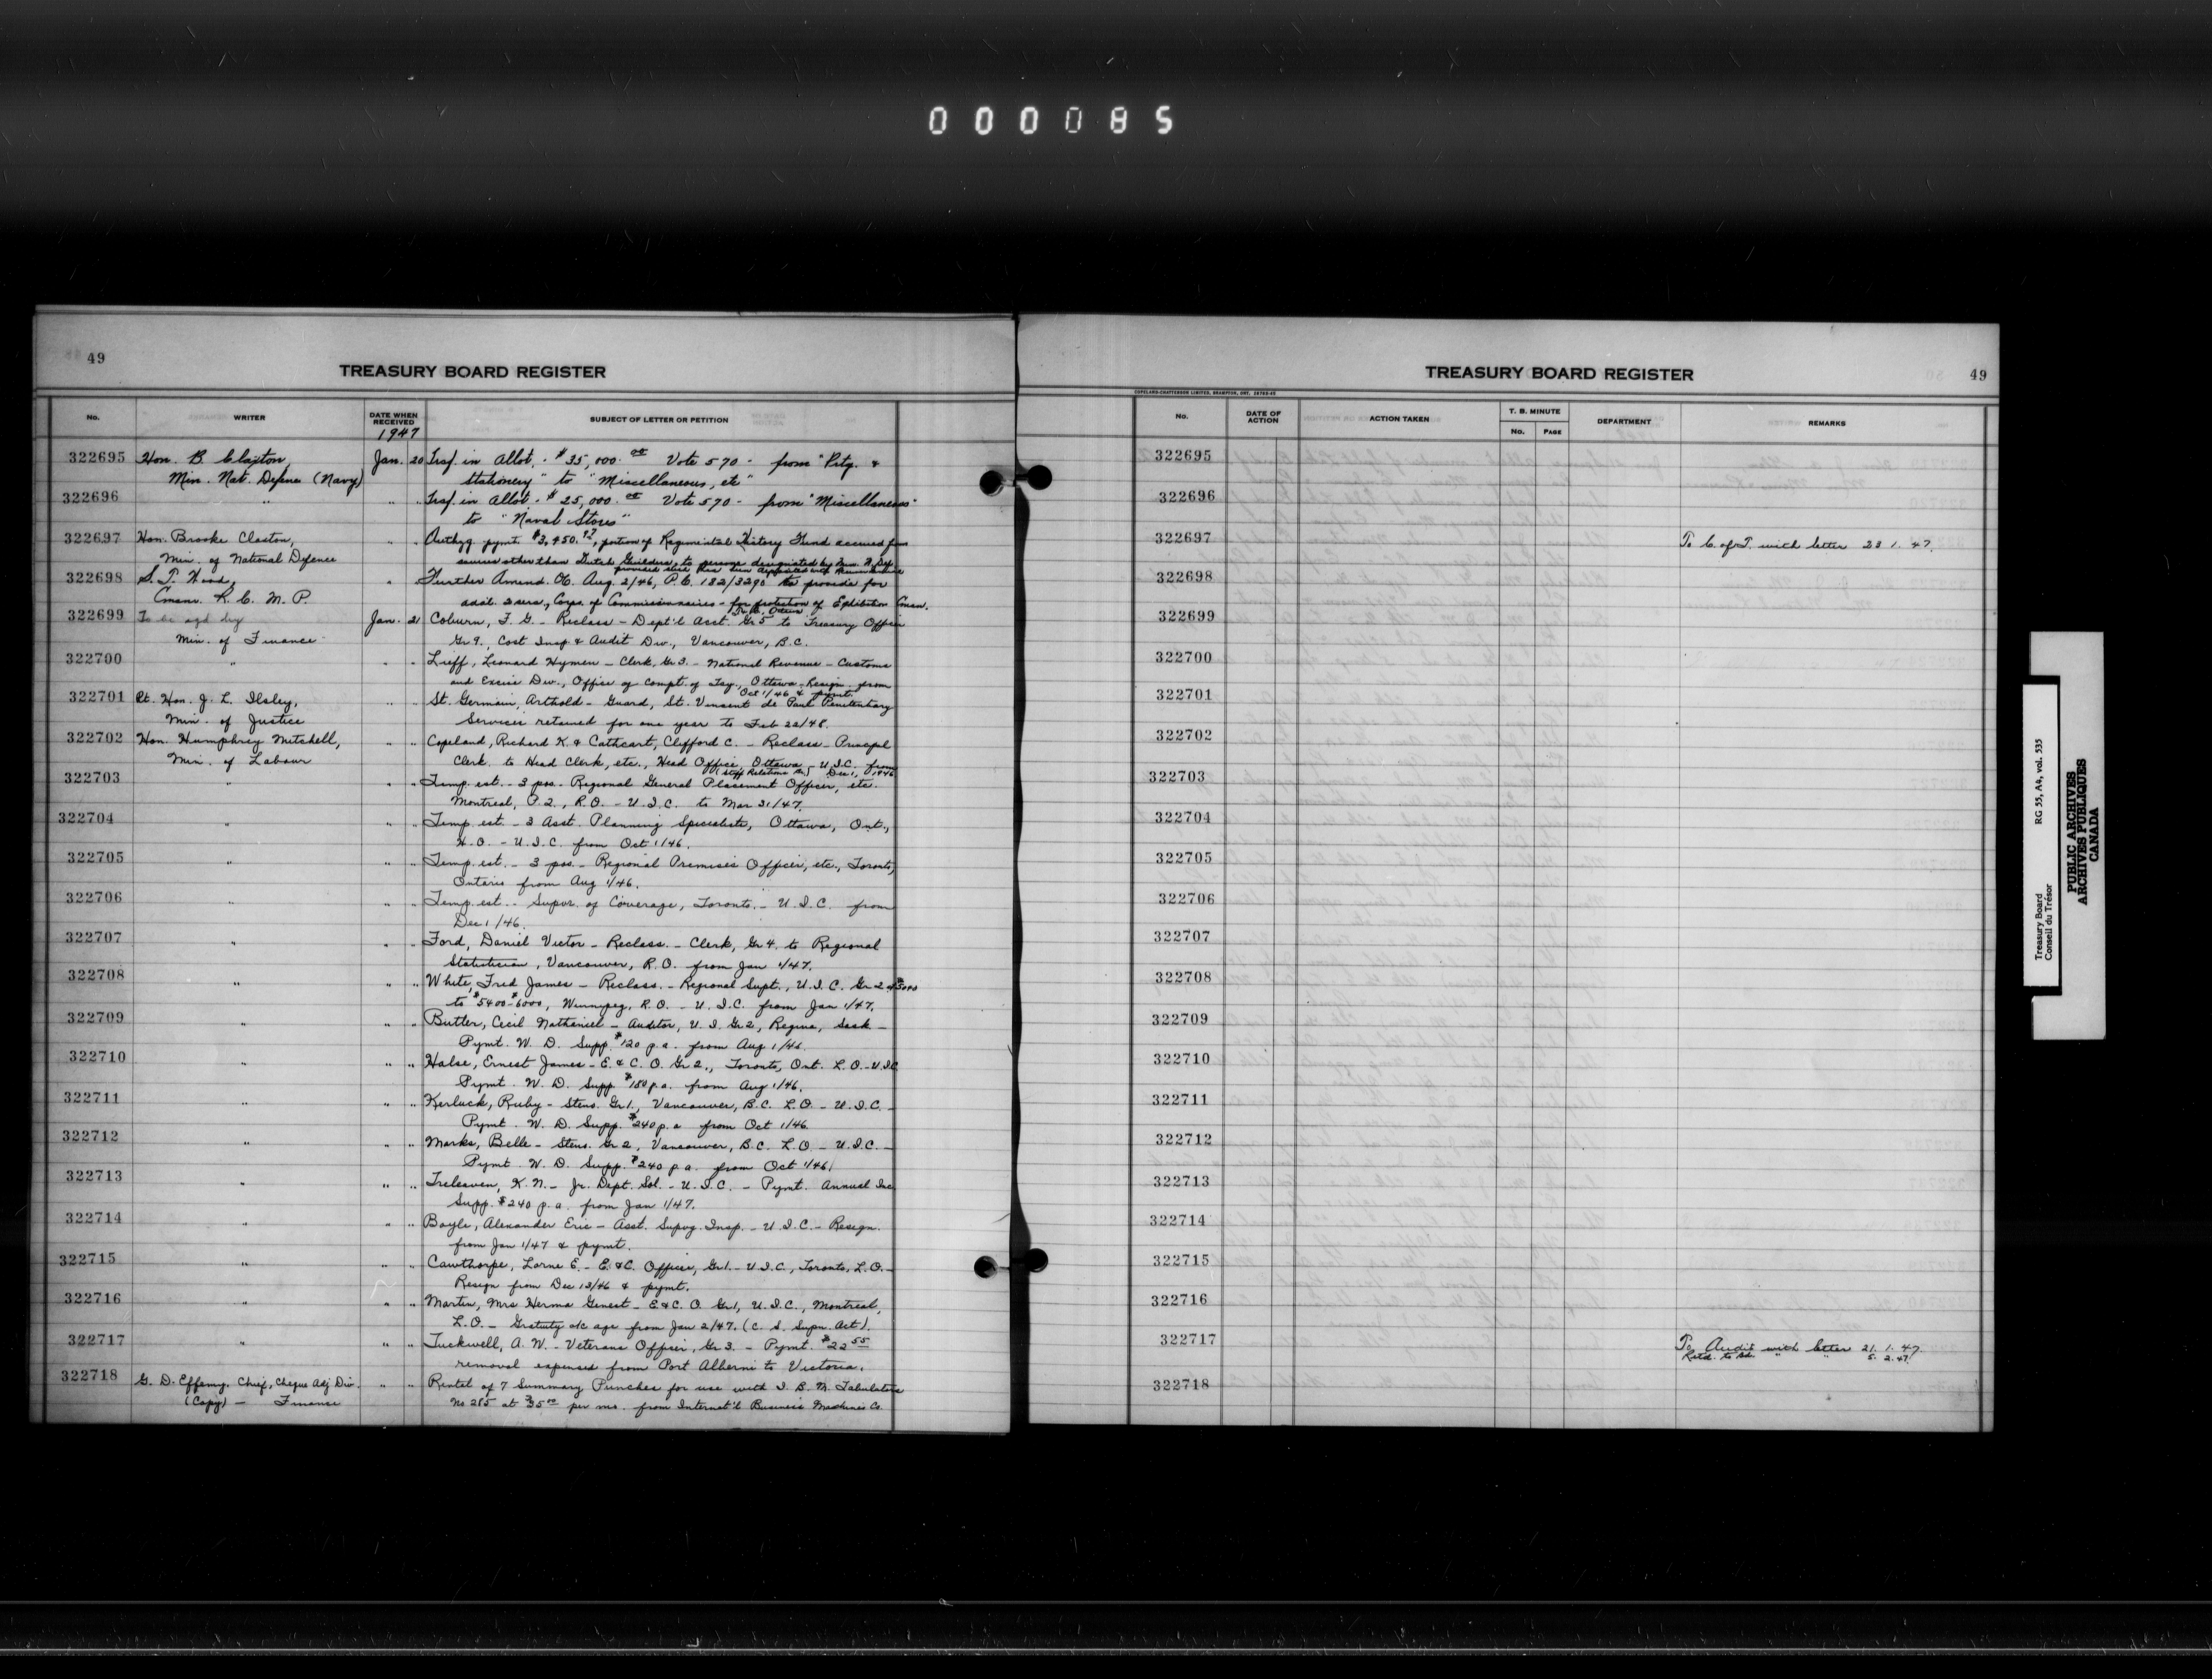 000085
49
TREASURY BOARD REGISTER
No. WRITER DATE WHEN RECEIVED SUBJECT OF LETTER OR PETITION
1947
322695 Hon. B. Claxton, Jan. 20 Trsf. in Allot. - $35,000.00 Vote 570 - from "Prtg. &
Min. Nat. Defence (Navy) Stationery" to "Miscellaneous, etc"
322696 " " " Trsf. in Allot. - $25,000.00 Vote 570 - from "Miscellaneous"
to "Naval Stores"
322697 Hon. Brooke Claxton, " " pymt. portion of Regimental History Fund accrued from
Min. of National Defence sources other than Dutch Guilders, to persons designated by Min. N. Def.
322698 S. T. Wood, " Further Amend. OC. Aug. 2/46, P.C. 182/3290 to provide for
Commr. R. C. M. P. Corps. of Commissionaires - for protection of Exhibition Comm.
322699 To be sgd by Jan. 21 Coburn, F. G. - Reclass - Dept'l Acct. Gr 5 to Treasury Officer
Min. of Finance Gr 9., Cost Insp. & Audit Div., Vancouver, B.C.
322700 " " " Lieff, Leonard Hymen - Clerk, Gr 3. - National Revenue - Customs
and Excise Div., Office of Compt. of Tsy., Ottawa - Resign. from
Oct 1/46 & pymt.
322701 Rt. Hon. J. L. Ilsley, " " St. Germain, Arthold - Guard, St. Vincent de Paul Penitentiary
Min. of Justice Services retained for one year to Feb 22/48.
322702 Hon. Humphrey Mitchell, " " Copeland, Richard K. & Cathcart, Clifford C. - Reclass - Principal
Min. of Labour Clerk to Head Clerk, etc., Head Office, Ottawa - U.I.C. from
(Staff Relations Br.) Dec 1, 1946
322703 " " " Temp. est. - 3 pos. - Regional General Placement Officer, etc.
Montreal, P.Q., R.O. - U.I.C. to Mar 31/47.
322704 " " " Temp. est. - 3 Asst. Planning Specialists, Ottawa, Ont.,
H.O. - U.I.C. from Oct 1/46.
322705 " " " Temp. est. - 3 pos. - Regional Premises Officer, etc., Toronto,
Ontario from Aug 1/46.
322706 " " " Temp. est. - Supvr. of Coverage, Toronto. - U.I.C. from
Dec 1/46.
322707 " " " Ford, Daniel Victor - Reclass. - Clerk, Gr 4. to Regional
Statistician, Vancouver, R.O. from Jan 1/47.
322708 " " " White, Fred James - Reclass. - Regional Supt., U.I.C. Gr 2
to $5400-$6000, Winnipeg, R.O. - U.I.C. from Jan 1/47.
322709 " " " Butler, Cecil Nathaniel - Auditor, U.I. Gr 2, Regina, Sask -
Pymt. W. D. Supp. $120 p.a. from Aug 1/46.
322710 " " " Halse, Ernest James - E. & C. O. Gr 2., Toronto, Ont. L.O. - U.I.C.
Pymt. W. D. Supp. $180 p.a. from Aug 1/46.
322711 " " " Kerluck, Ruby - Steno. Gr 1., Vancouver, B.C. L.O. - U.I.C. -
Pymt. W. D. Supp. $240 p.a from Oct 1/46
322712 " " " Marks, Belle - Steno. Gr 2, Vancouver, B.C. L.O - U.I.C. -
Pymt. W. D. Supp. $240 p.a. from Oct 1/46.
322713 " " " Treleaven, K. N. - Jr. Dept. Sol. - U.I.C. - Pymt. Annual Inc.
Supp. $240 p.a. from Jan 1/47.
322714 " " " Boyle, Alexander Eric - Asst. Supvg. Insp. - U.I.C. - Resign.
from Jan 1/47 & pymt.
322715 " " " Cawthorpe, Lorne E. - E. & C. Officer, Gr 1. - U.I.C., Toronto, L.O. -
Resign from Dec 13/46 & pymt.
322716 " " " Martin, Mrs Herma Genest - E & C. O. Gr 1, U.I.C., Montreal,
L.O. - Gratuity a/c age from Jan 2/47. (C. S. Supn. Act).
322717 " " " Tuckwell, A. W. - Veterans Officer, Gr 3. - Pymt. $22.55
removal expenses from Port Alberni to Victoria.
322718 G. D. Effamy, Chief, Cheque Adj Div. " " Rental of 7 Summary Punches for use with I. B. M. Tabulators
(Copy) - Finance No 285 at $35.00 per mo. from Internat'l Business Machines Co.
TREASURY BOARD REGISTER
49
COPELAND-CHATTERSON LIMITED, BRAMPTON, ONT.
No. DATE OF ACTION ACTION TAKEN T. B. MINUTE DEPARTMENT REMARKS
No. PAGE
322695
322696
322697 To C. of T. with letter 23.1.47.
322698
322699
322700
322701
322702
322703
322704
322705
322706
322707
322708
322709
322710
322711
322712
322713
322714
322715
322716
322717 To Audit with letter 21.1.47
Retd. to Bd. " " 5.2.47.
322718
Treasury Board RG 55, A4, vol. 535
Conseil du Trésor
PUBLIC ARCHIVES
ARCHIVES PUBLIQUES
CANADA